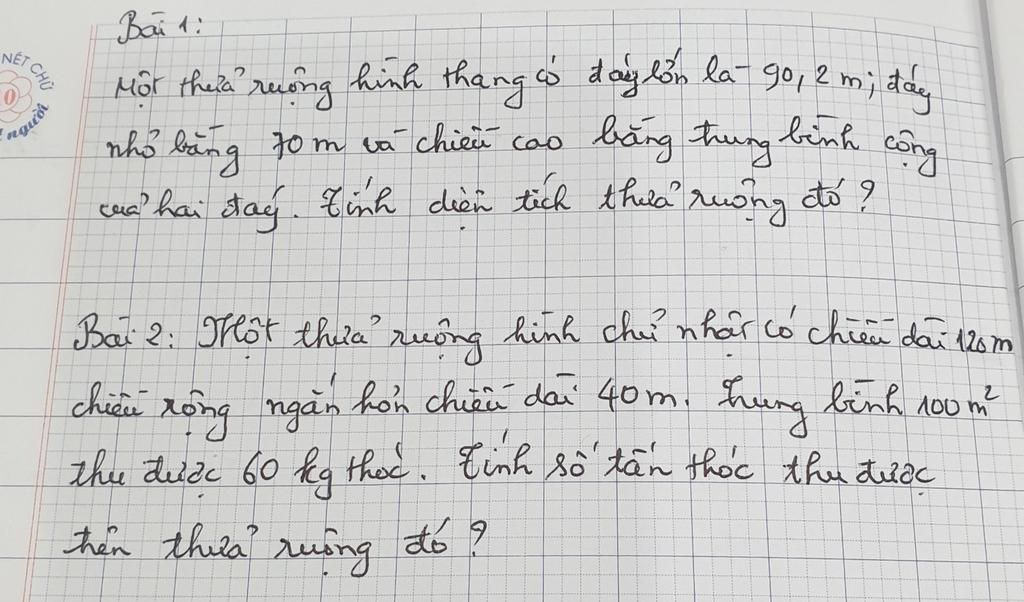 Bài 1:
NÉT CHỮ
người
Một thửa ruộng hình thang có đáy lớn là 90,2 m; đáy
nhỏ bằng 70 m và chiều cao bằng trung bình cộng
của hai đáy. Tính diện tích thửa ruộng đó?
Bài 2: Một thửa ruộng hình chữ nhật có chiều dài 120 m
chiều rộng ngắn hơn chiều dài 40 m. Trung bình 100 m²
thu được 60 kg thóc. Tính số tấn thóc thu được
trên thửa ruộng đó?